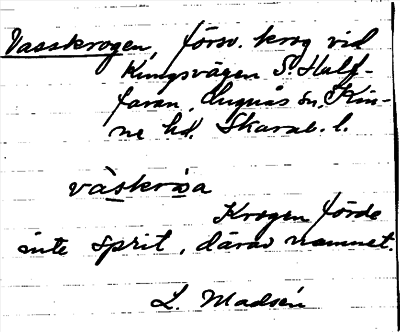 Vasskrogen, försv. krog vid
Kungsvägen S. Hall-
faran, Lugnås sn, Kin-
ne hd. Skarab. l.
våskrỏa
Krogen förde
inte sprit, därav namnet.
L. Madsén